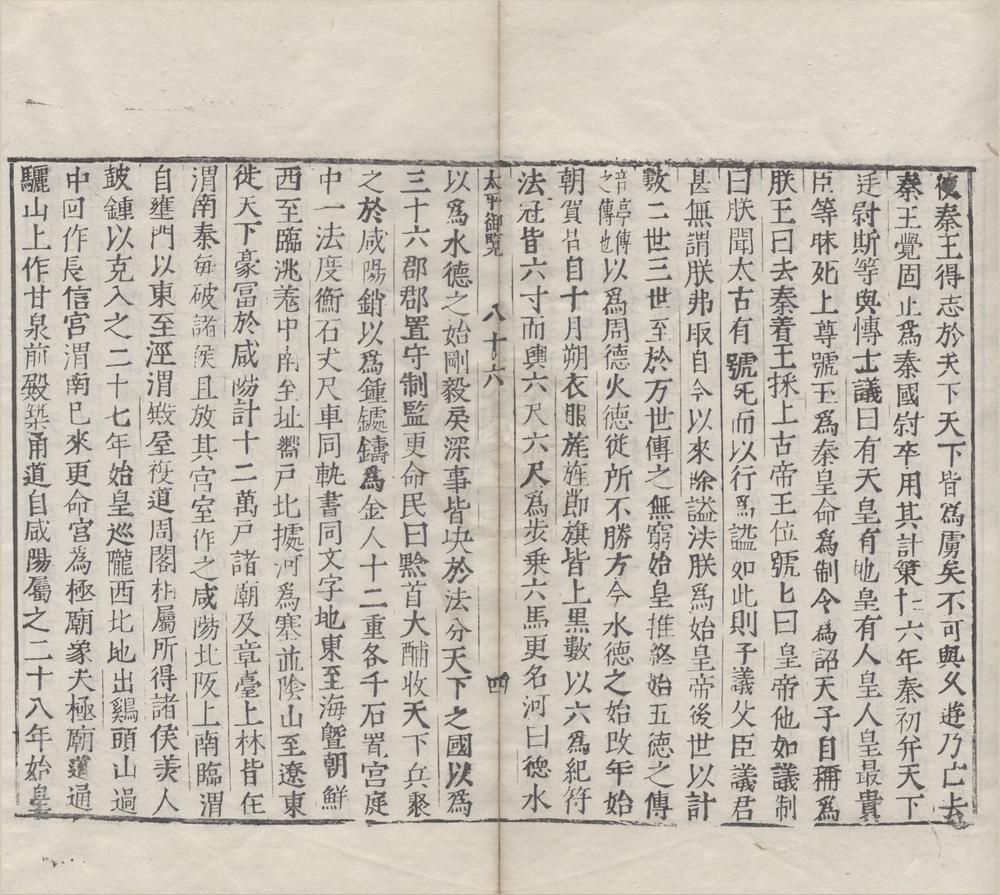 使秦王得志於天下天下皆為虜矣不可與久遊乃亡去
秦王覺固止為秦國尉卒用其計策十六年秦初并天下
廷尉斯等與博士議曰有天皇有地皇有人皇人皇最貴
臣等昧死上尊號王為秦皇命為制令為詔天子自稱為
朕王曰去秦着王採上古帝王位號上曰皇帝他如議制
曰朕聞太古有號死而以行為謚如此則子議父臣議君
甚無謂朕弗取自今以來除謚法朕為始皇帝後世以計
數二世三世至於万世傳之無窮始皇推終始五德之傳
音亭傳之傳也以為周德火德從所不勝方今水德之始改年始
朝賀皆自十月朔衣服旄旌節旗皆上黑數以六為紀符
法冠皆六寸而輿六尺六尺為步乗六馬更名河曰德水
太平御覧 八十六 四
以為水德之始剛毅戾深事皆决於法分天下之國以為
三十六郡郡置守制監更命民曰黔首大酺收天下兵聚
之於咸陽銷以為鍾鐻鑄為金人十二重各千石置宮庭
中一法度衡石丈尺車同軌書同文字地東至海曁朝鮮
西至臨洮羌中南至北嚮戸北據河為塞並陰山至遼東
徙天下豪冨於咸陽計十二萬戸諸廟及章臺上林皆在
渭南秦每破諸侯且放其宮室作之咸陽北阪上南臨渭
自雍門以東至涇渭殿屋複道周閣相屬所得諸侯美人
鼓鍾以克入之二十七年始皇巡隴西北地出鷄頭山過
中回作長信宮渭南已來更命宮為極廟象天極廟道通
驪山上作甘泉前殿築甬道自咸陽屬之二十八年始皇